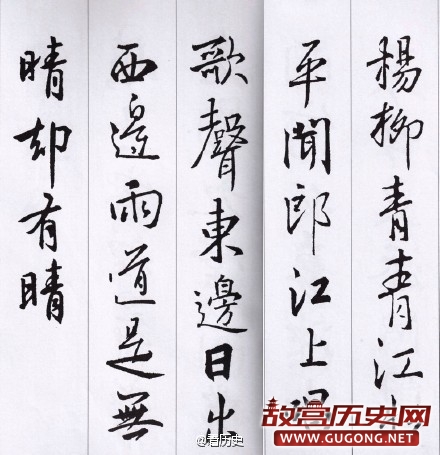 楊柳青青江
平聞郎江上唱
歌聲東邊日出
西邊雨道是無
晴却有晴
@看历史
故宫历史网
WWW.GUGONG.NET